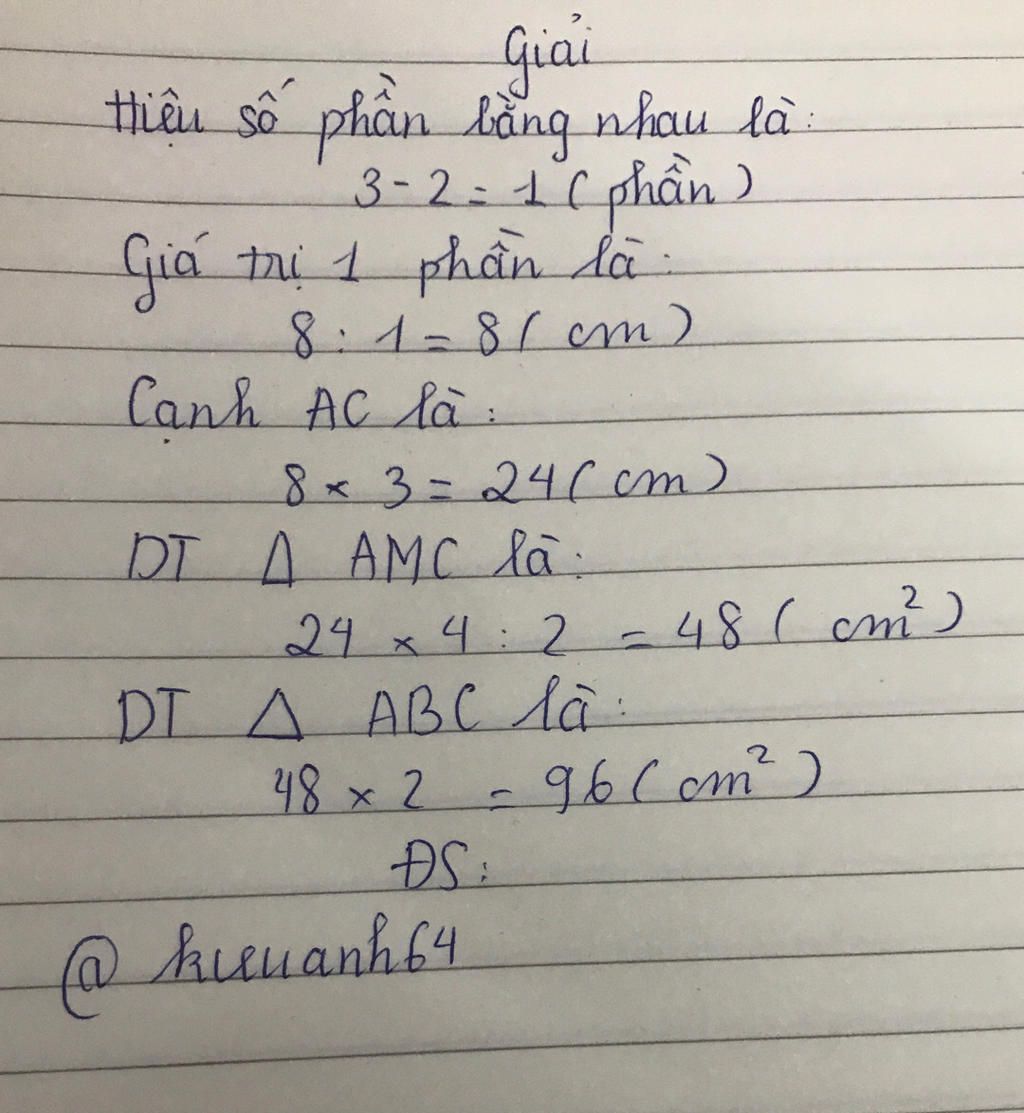 Giải
Hiệu số phần bằng nhau là:
3 - 2 = 1 ( phần )
Giá trị 1 phần là:
8 : 1 = 8 ( cm )
Cạnh AC là:
8 × 3 = 24 ( cm )
DT Δ AMC là:
24 × 4 : 2 = 48 ( cm² )
DT Δ ABC là:
48 × 2 = 96 ( cm² )
ĐS:
@ kieuanh64